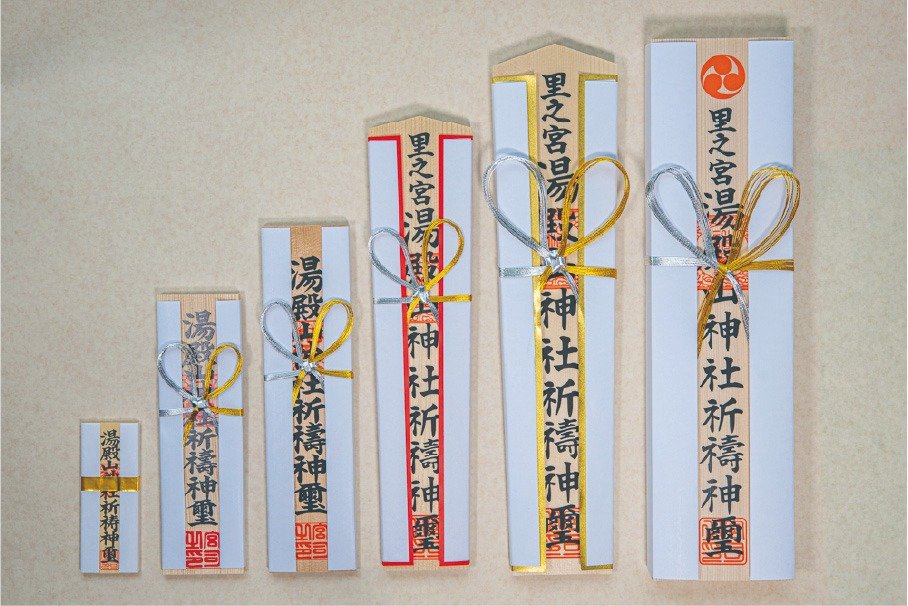 湯殿山神社祈祷神璽
湯殿山神社祈禱神璽
宮司之印
湯殿山神社祈禱神璽
宮司之印
里之宮湯殿山神社祈禱神璽
里之宮湯殿山神社祈禱神璽
里之宮湯殿山神社祈禱神璽